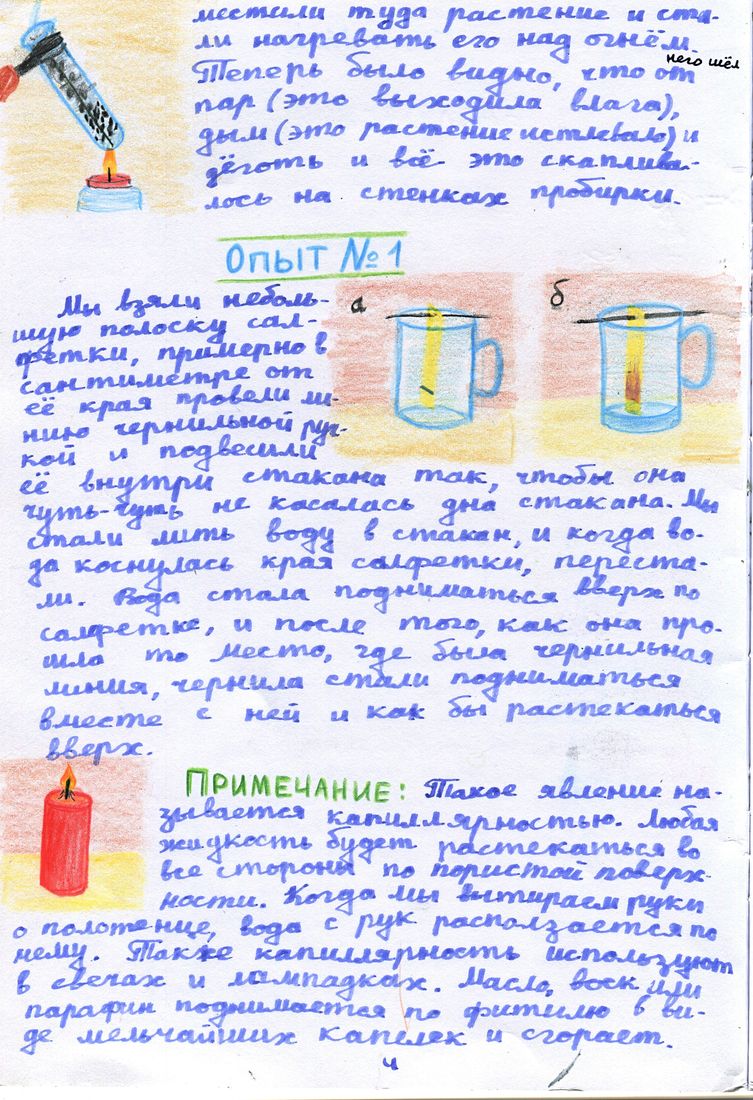 местили туда растение и ста-
ли нагревать его над огнём.
Теперь было видно, что от него шёл
пар (это выходила влага),
дым (это растение истлевало) и
дёготь и всё это скаплива-
лось на стенках пробирки.
ОПЫТ №1
Мы взяли неболь-
шую полоску сал-
фетки, примерно в
сантиметре от
её края провели ли-
нию чернильной руч-
кой и подвесили
а
б
её внутри стакана так, чтобы она
чуть-чуть не касалась дна стакана. Мы
стали лить воду в стакан, и когда во-
да коснулась края салфетки, переста-
ли. Вода стала подниматься вверх по
салфетке, и после того, как она про-
шла то место, где была чернильная
линия, чернила стали подниматься
вместе с ней и как бы растекаться
вверх.
ПРИМЕЧАНИЕ: Такое явление на-
зывается капиллярностью. Любая
жидкость будет растекаться во
все стороны по пористой поверх-
ности. Когда мы вытираем руки
о полотенце, вода с рук расползается по
нему. Также капиллярность используют
в свечах и лампадках. Масло, воск или
парафин поднимается по фитилю в ви-
де мельчайших капелек и сгорает.
4